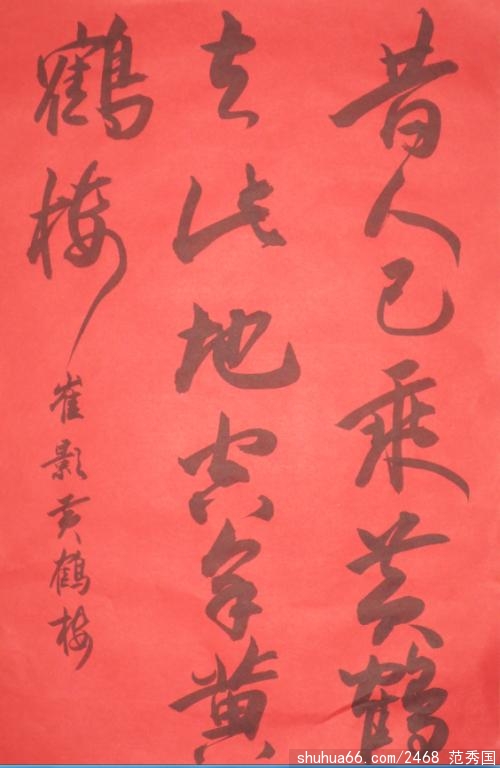 昔人已乘黄鹤
去此地空余黄
鹤楼
崔影黄鹤楼
shuhua66.com/2468 范秀国